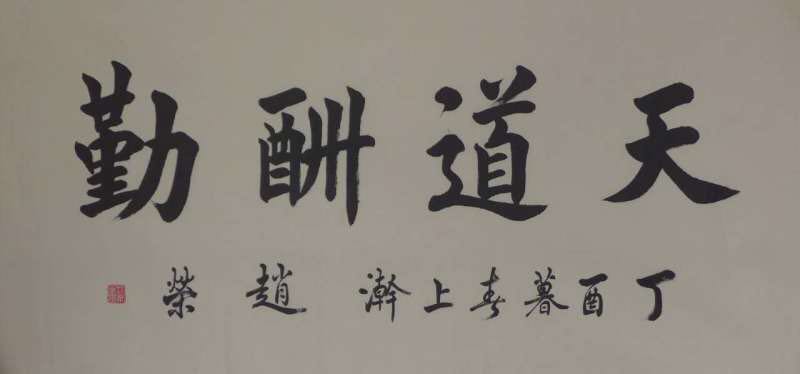 天道酬勤
丁酉暮春上澣 趙榮